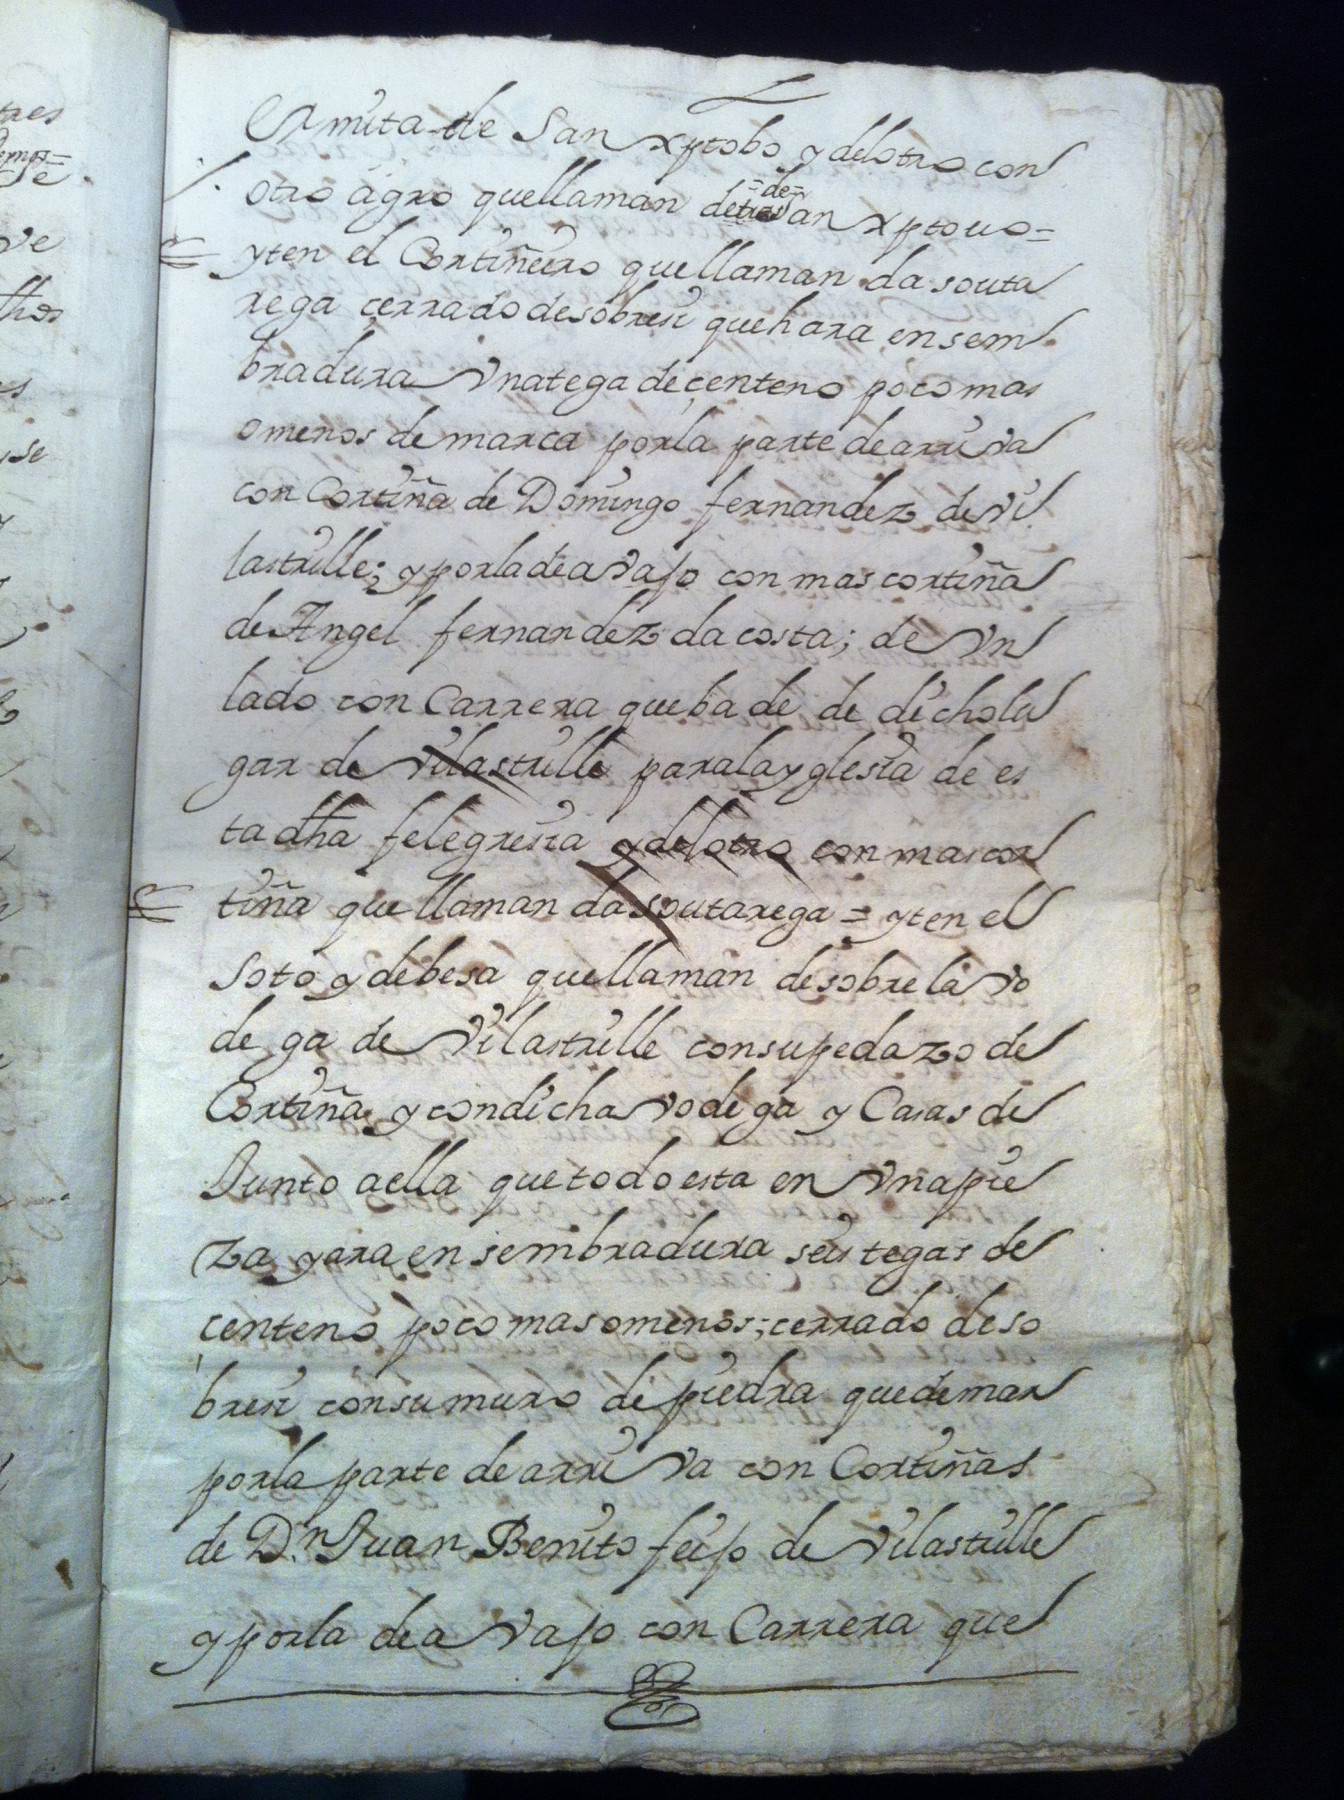 Ermita de San xptobo y delotro con
otro agro quellaman =de= detras san xptouo=
yten el Cortiñeiro quellaman da souta
rega cerrado desobresi quehara ensem
bradura Vnatega decenteno poco mas
omenos demarca porla parte dearriva
con Cortiña de Domingo fernandez de Vi
lastrille; yporladeavajo con mas cortiña
de Angel fernandez dacosta; de Vn
lado con Carrera queba de de dicholu
gar de Vilastrille paralayglesia de es
ta dha felegresia ydelotro con mas cor
tiña quellaman da soutarega = yten el
Soto y debesa quellaman desobrela vo
dega de Vilastrille consupedazo de
Cortiña y condicha vodega y Casas de
Junto aella quetodoesta en Vnapie
za yara ensembradura seis tegas de
centeno poco masomenos; cerrado deso
bresi consumuro de piedra quedemar
porla parte dearriva con Cortiñas
de Dn. Juan Benito feijo de Vilastrille
yporla dea vajo con Carrera que
tres
ve
se